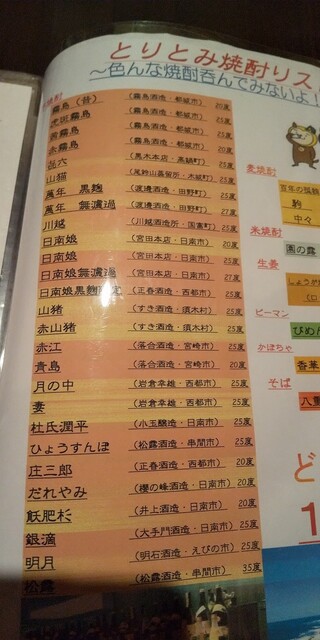 とりとみ焼酎リス
～色んな焼酎呑んでみないよ！
焼酎
霧島（昔）（霧島酒造・都城市）20度
虎斑霧島（霧島酒造・都城市）25度
（霧島酒造・都城市）25度
赤霧島（霧島酒造・都城市）20度
㐂六（黒木本店・高鍋町）25度
山猫（尾鈴山蒸留所・木城町）25度
萬年 黒麹（渡邊酒造・田野町）25度
萬年 無濾過（渡邊酒造・田野町）27度
川越（川越酒造所・国富町）25度
日南娘（宮田本店・日南市）20度
日南娘（宮田本店・日南市）25度
日南娘無濾過（宮田本店・日南市）27度
日南娘黒麹（正春酒造・西都市）25度
山猪（すき酒造・須木村）25度
赤山猪（すき酒造・須木村）25度
赤江（落合酒造・宮崎市）25度
青島（落合酒造・宮崎市）20度
月の中（岩倉幸雄・西都市）25度
妻（岩倉幸雄・西都市）25度
杜氏潤平（小玉醸造・日南市）25度
ひょうすんぼ（松露酒造・串間市）25度
庄三郎（正春酒造・西都市）20度
だれやみ（櫻の峰酒造・日南市）20度
飫肥杉（井上酒造・日南市）20度
銀滴（大手門酒造・日南市）25度
明月（明石酒造・えびの市）25度
松露（松露酒造・串間市）35度
麦焼酎
百年の孤独
駒
中々
米焼酎
園の露
生姜
しょうが
ピーマン
ぴめん
かぼちゃ
香華
そば
八重
ど
1